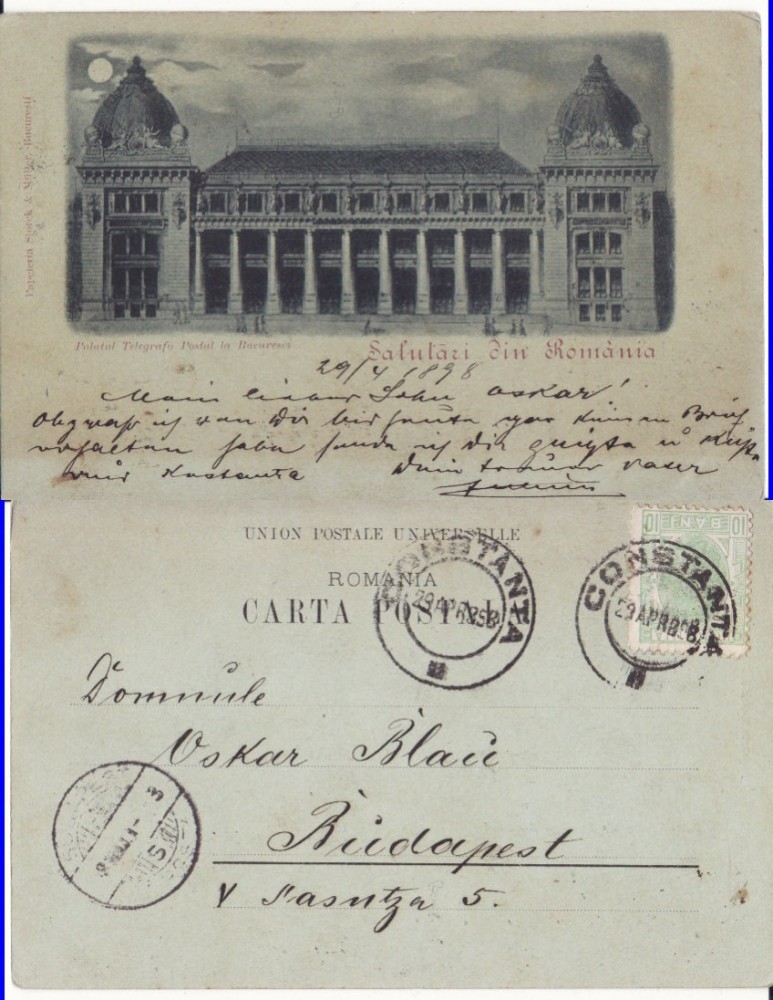 Papeteria Storck & Müller - Bucuresti
Palatul Telegrafo Postal la Bucuresci
Salutări din România
29/4 1898
Mein lieber Sohn Oskar!
ich von Dir bis heute gar keinen Brief
erhalten habe sende ich Dir u
aus Kostanta Dein treuer Vater
UNION POSTALE UNIVERSELLE
ROMANIA
CARTA POSTALA
CONSTANTA
29 APR 98
CONSTANTA
29 APR 98
10 BANI 10
Domnule
Oskar Blau
Budapest
V 5.